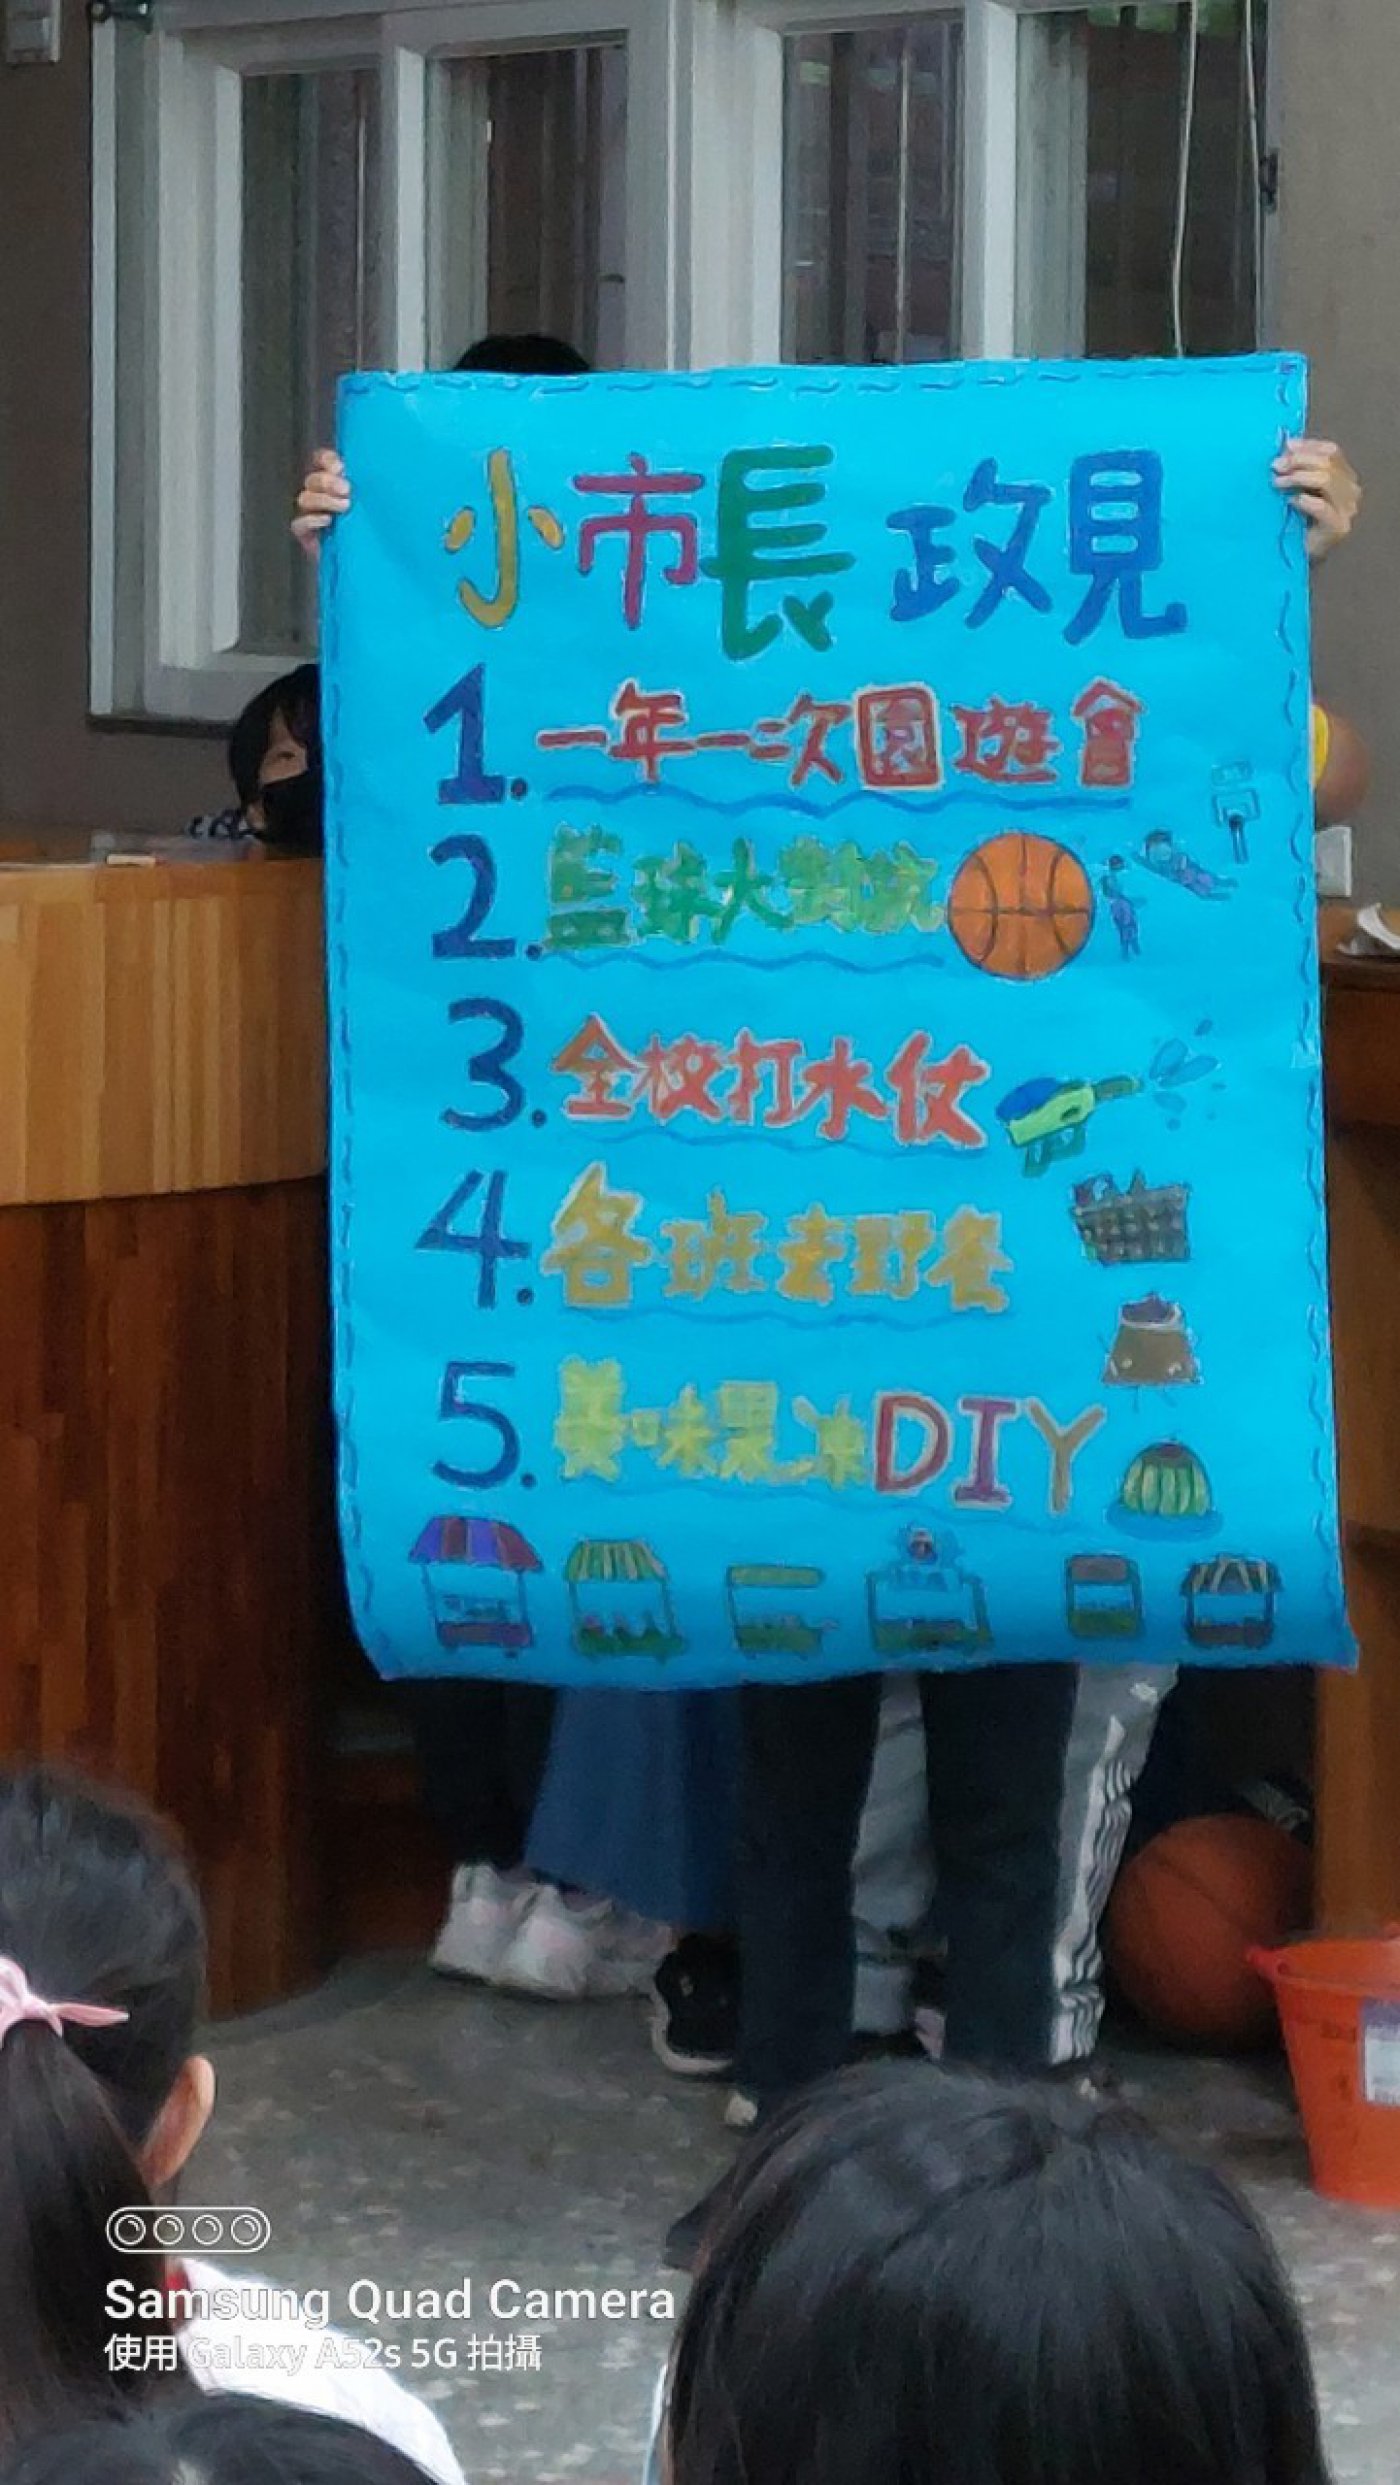 小市長 政見
1. 一年一次園遊會
2. 籃球大對抗
3. 全校打水仗
4. 各班去野餐
5. 美味果凍DIY
Samsung Quad Camera
使用 Galaxy A52s 5G 拍攝